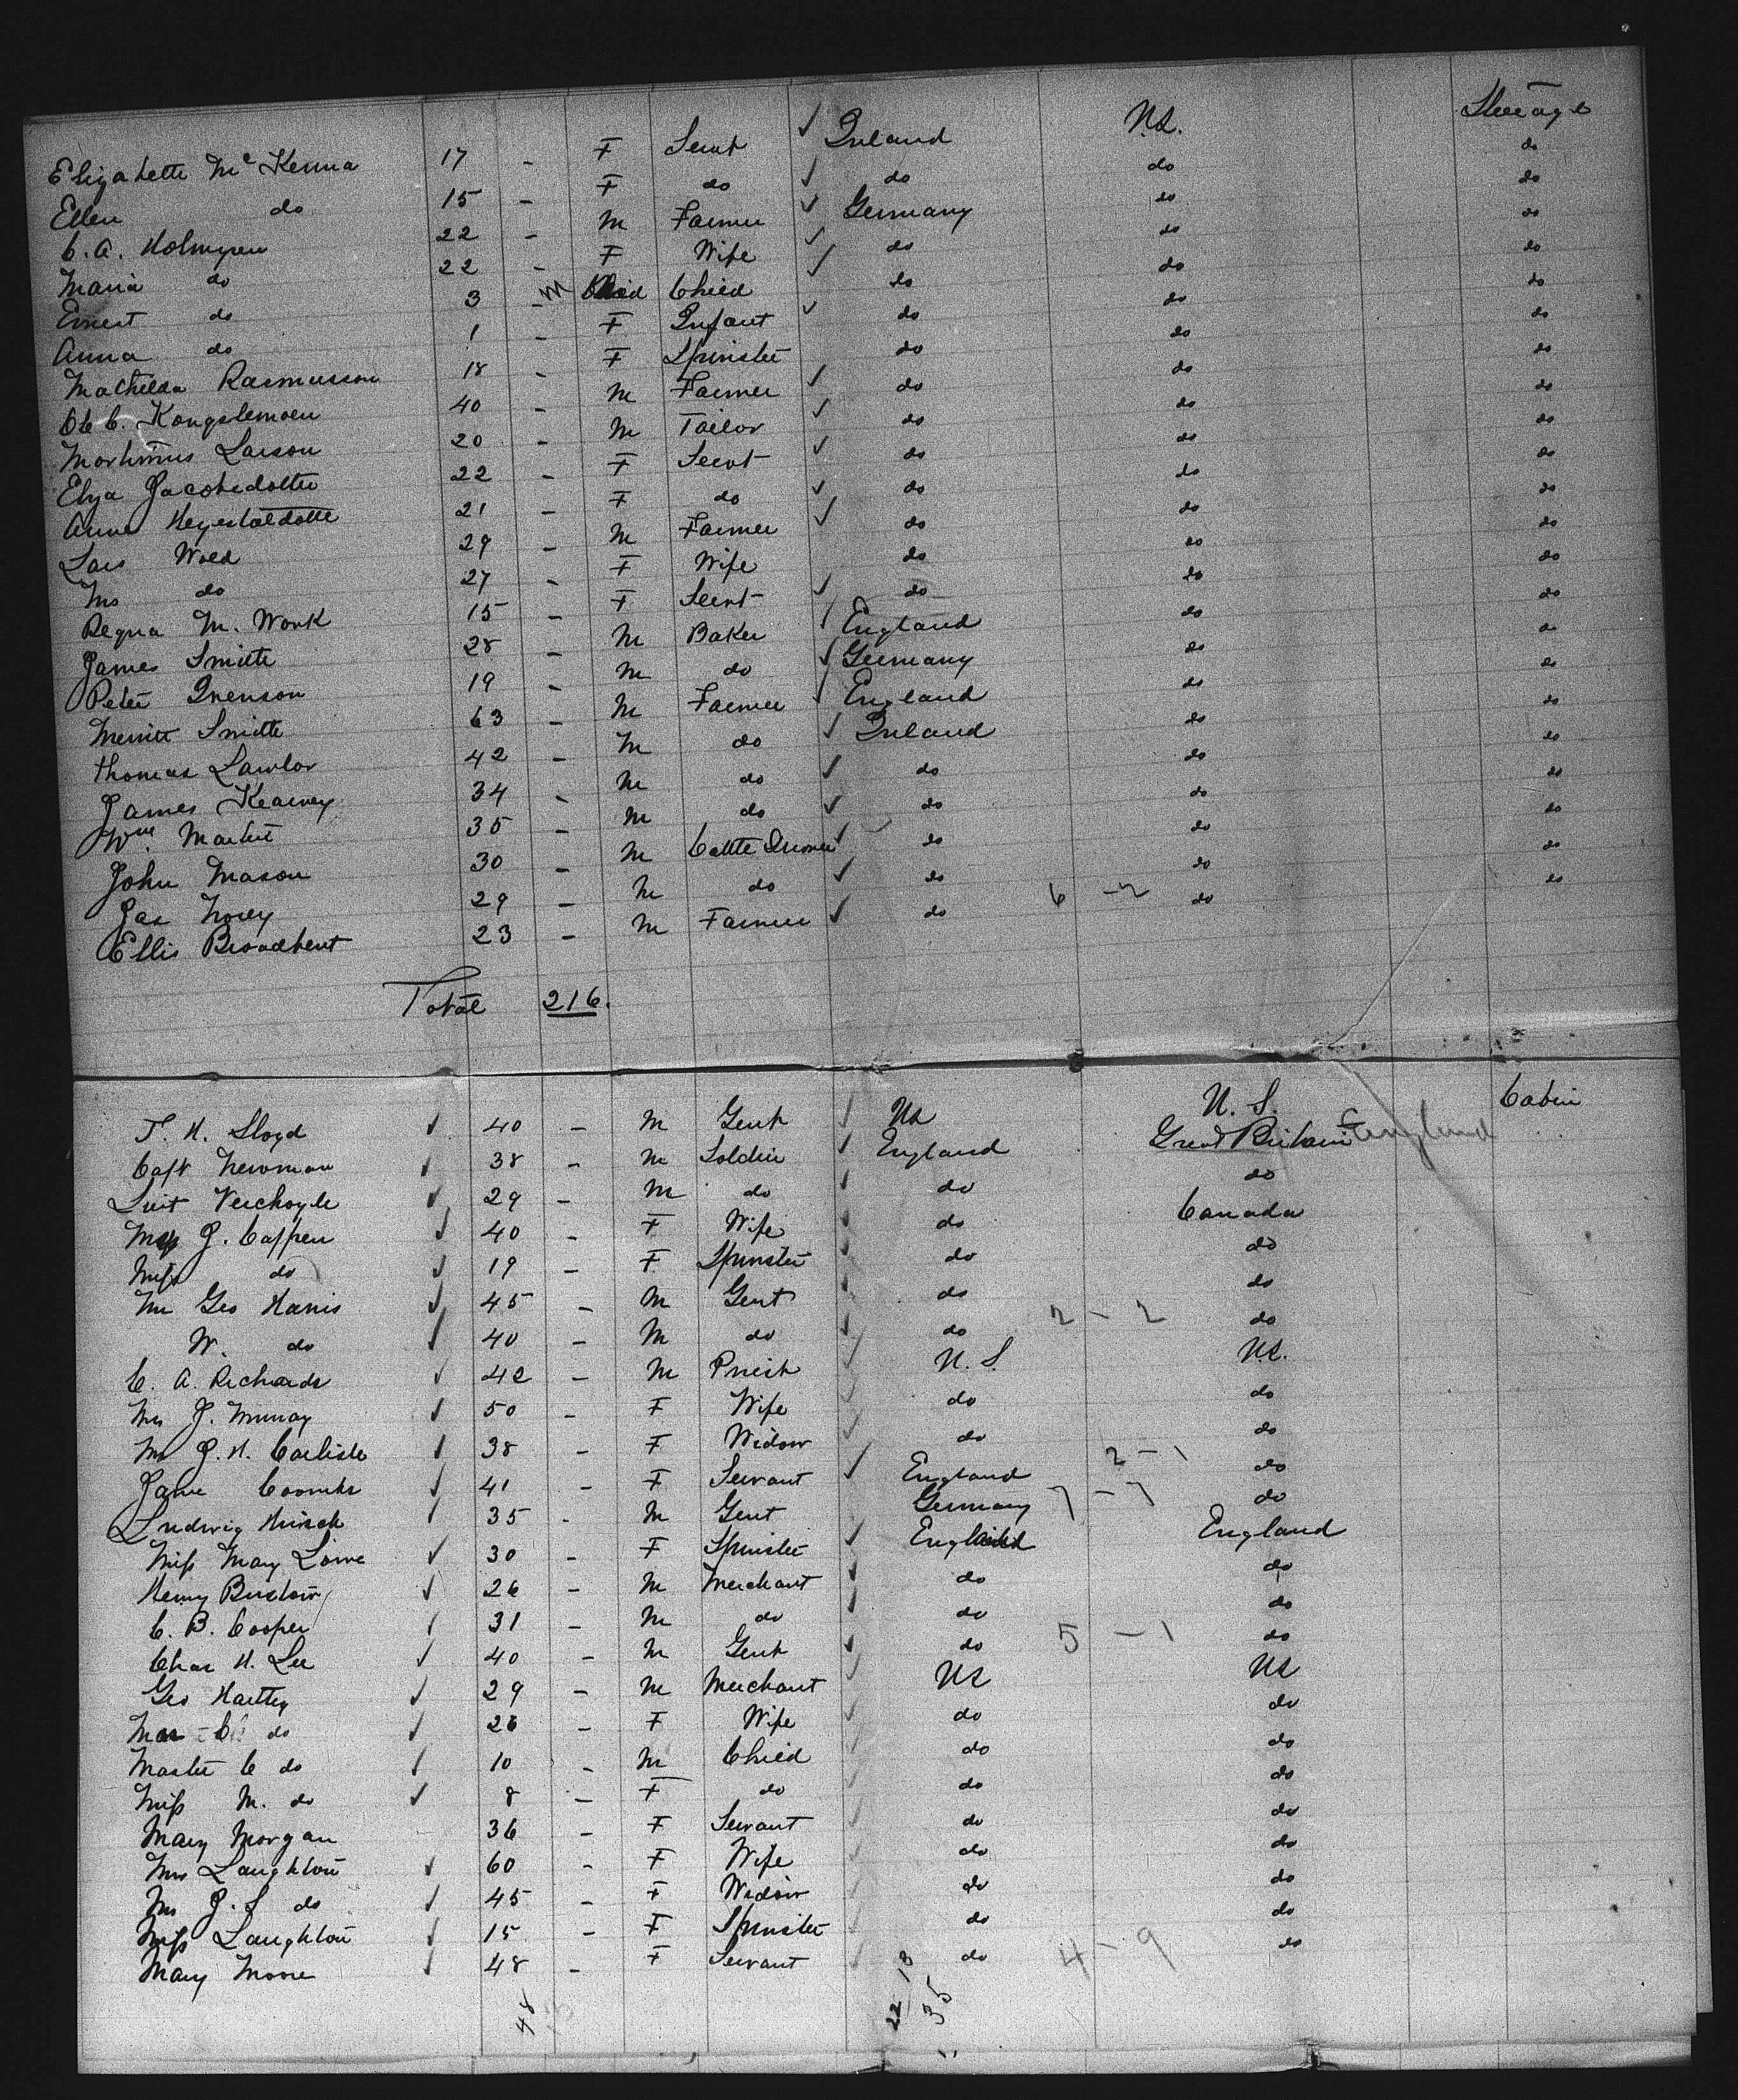 Elizabeth Mc Kenna 17 - F Servt ✓ Ireland U.S. Steerage
Ellen do 15 - F do ✓ do do do
C. A. Holmgren 22 - M Farmer ✓ Germany do do
Maria do 22 - F Wife ✓ do do do
Ernest do 3 - M Child ✓ do do do
Anna do 1 - F Infant ✓ do do do
Mathilda Rasmusson 18 - F Spinster do do do
Ole C. Kongslemoen 40 - M Farmer ✓ do do do
Morthinus Larson 20 - M Tailor ✓ do do do
Elga Jacobsdotter 22 - F Servt ✓ do do do
Anne 21 - F do ✓ do do do
Lars Wold 29 - M Farmer ✓ do do do
Mrs do 27 - F Wife do do do
Regna M. Work 15 - F Servt ✓ do do do
James Smith 28 - M Baker ✓ England do do
Peter Svenson 19 - M do ✓ Germany do do
Merritt Smith 63 - M Farmer ✓ England do do
Thomas Lawlor 42 - M do ✓ Ireland do do
James Kearney 34 - M do ✓ do do do
Wm. 35 - M do ✓ do do do
John Mason 30 - M Cattle Drover ✓ do do do
Jas 29 - M do ✓ do do do
Ellis Broadbent 23 - M Farmer ✓ do 6 - 2 do do
Total 216.
T. H. Lloyd ✓ 40 - M Gent ✓ US U. S. Cabin
Capt Newman ✓ 38 - M Soldier ✓ England Great Britain England
Luit Verchoyle ✓ 29 - M do ✓ do do
J. Cappen ✓ 40 - F Wife ✓ do Canada
Miss do ✓ 19 - F Spinster ✓ do do
Mr Geo Harris ✓ 45 - M Gent ✓ do do
W. do ✓ 40 - M do ✓ do 2 - 2 do
C. A. Richards ✓ 42 - M Priest ✓ U. S. U.S.
Mrs J. Murray ✓ 50 - F Wife ✓ do do
Mrs J. H. Carlisle ✓ 38 - F Widow ✓ do do
Jane Coombs ✓ 41 - F Servant ✓ England 2 - 1 do
Ludwig Hirsch ✓ 35 - M Gent Germany 7 - 7 do
Miss Mary Lowe ✓ 30 - F Spinster ✓ England England
Henry ✓ 26 - M Merchant ✓ do do
C. B. Cooper ✓ 31 - M do ✓ do do
Chas H. Lee ✓ 40 - M Gent ✓ do 5 - 1 do
Geo Hartley ✓ 29 - M Merchant ✓ US US
Mrs C do ✓ 26 - F Wife ✓ do do
Master C do ✓ 10 - M Child ✓ do do
Miss M. do ✓ 8 - F do ✓ do do
Mary Morgan 36 - F Servant ✓ do do
Mrs Laughton ✓ 60 - F Wife ✓ do do
Mrs J. S do ✓ 45 - F Widow ✓ do do
Miss Laughton ✓ 15 - F Spinster ✓ do do
Mary Moore ✓ 48 - F Servant ✓ do 4 - 9 do
48 22 / 13
35